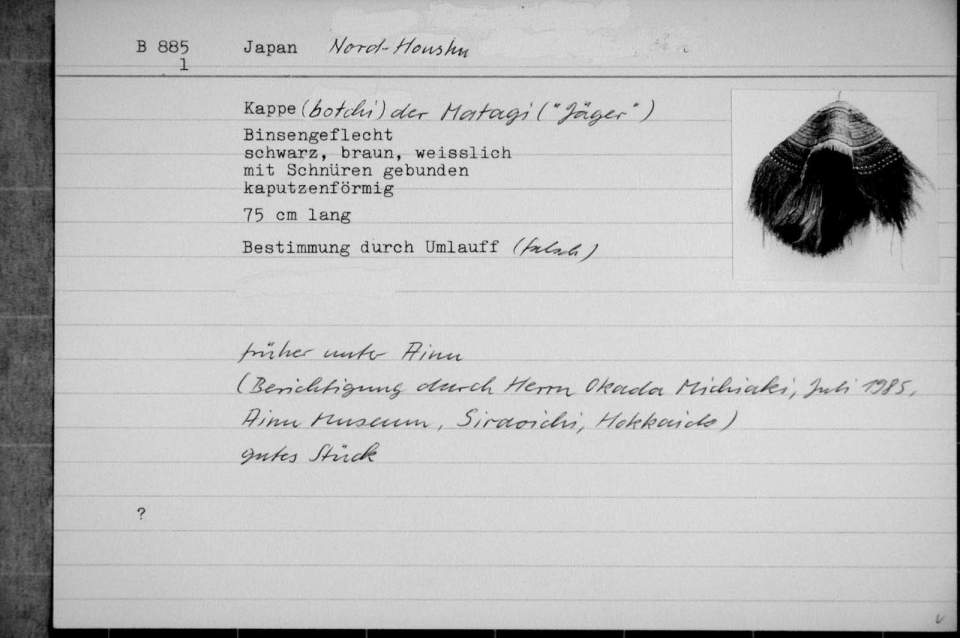 B 885 Japan Nord-Honshu
1
Kappe (botchi) der Matagi ("Jäger")
Binsengeflecht
schwarz, braun, weisslich
mit Schnüren gebunden
kaputzenförmig
75 cm lang
Bestimmung durch Umlauff (falsch)
früher unter Ainu
(Berichtigung durch Herrn Okada Michiaki, Juli 1985,
Ainu Museum, Siraoichi, Hokkaido)
gutes Stück
?